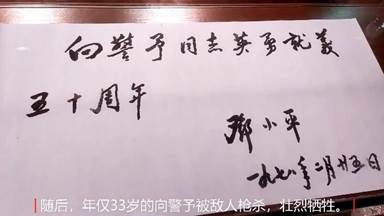 向警予同志英勇就义
五十周年
邓小平
一九七八年二月廿五日
随后，年仅33岁的向警予被敌人枪杀，壮烈牺牲。